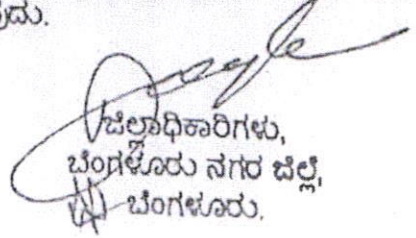 ಜಿಲ್ಲಾಧಿಕಾರಿಗಳು,
ಬೆಂಗಳೂರು ನಗರ ಜಿಲ್ಲೆ,
ಬೆಂಗಳೂರು.